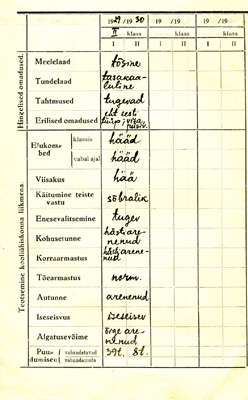 1929/1930 19 /19 19 /19
II klass klass klass
I II I II I II
Hingelised omadused.
Meelelaad tõsine
Tundelaad tasakaa-
luline
Tahtmused tugevad
Erilised omadused ekt eesti
tüüp; visa,
Teotsemine kooliühiskonna liikmena.
Elukom-
bed
klassis hääd
vabal ajal hääd
Viisakus hää
Käitumine teiste
vastu sõbralik
Enesevalitsemine tugev
Kohusetunne hästi are-
nenud
Korraarmastus hästi arene-
nud
Tõearmastus norm.
Autunne arenenud
Iseseisvus iseseisev
Algatusevõime õige are-
nenud
Puu-
dumised
vabandatavad 39t. 8t.
vabandamata